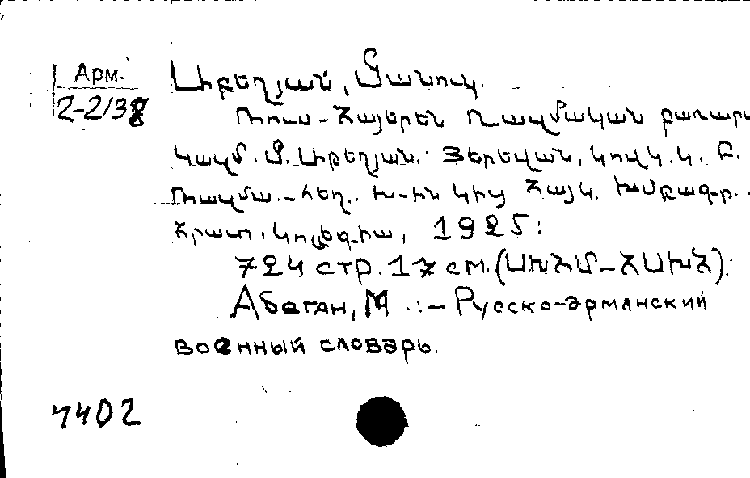 Арм.
2-2138
Աբեղյան, Մանուկ.
Ռուս-հայերեն ռազմական բառարան
Կազմ. Մ. Աբեղյան. Յերեվան, կովկ. կ. բ.
Ռազմա.-հեղ. խ-ին կից հայկ. խմբագր.
հրատ. կոլեգիա, 1925:
724 стр. 17 см. (ԱԽՀՄ-ՀԱԽՀ).
Абегян, М .:- Русско-армянский
военный словарь.
7402